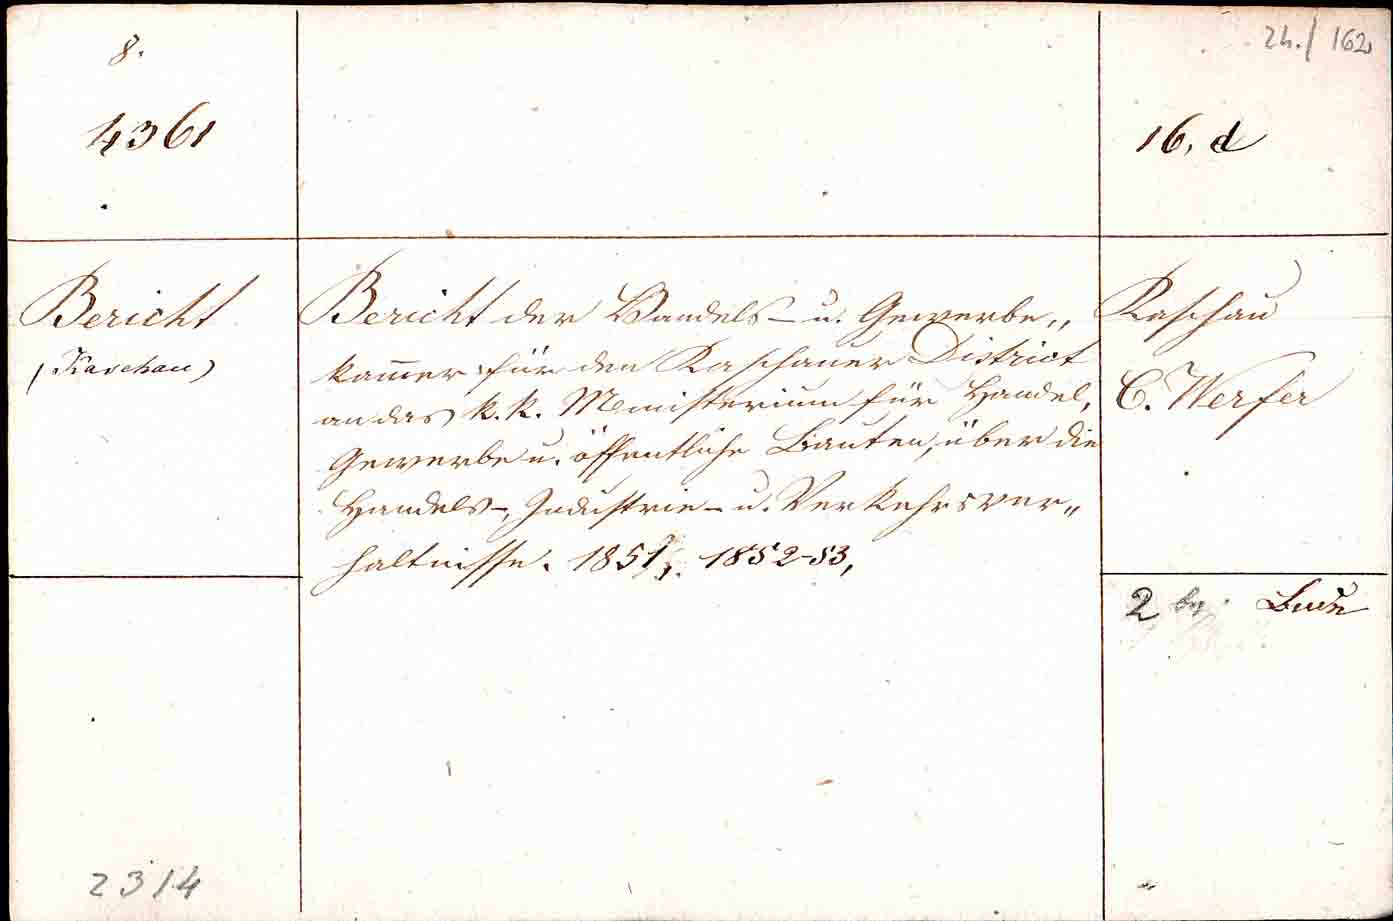 8.
4361
24./ 162
16. d
Bericht
(Kaschau)
Bericht der Handels- u. Gewerbe„
kam̄er für den Kaschauer District
an das k. k. Ministerium für Handel,
Gewerbe u. öffentliche Bauten, über die
Handels-, Industrie- u. Verkehrsver„
hältnisse. 1851, 1852-53,
Kaschau
C. Werfer
2
2314